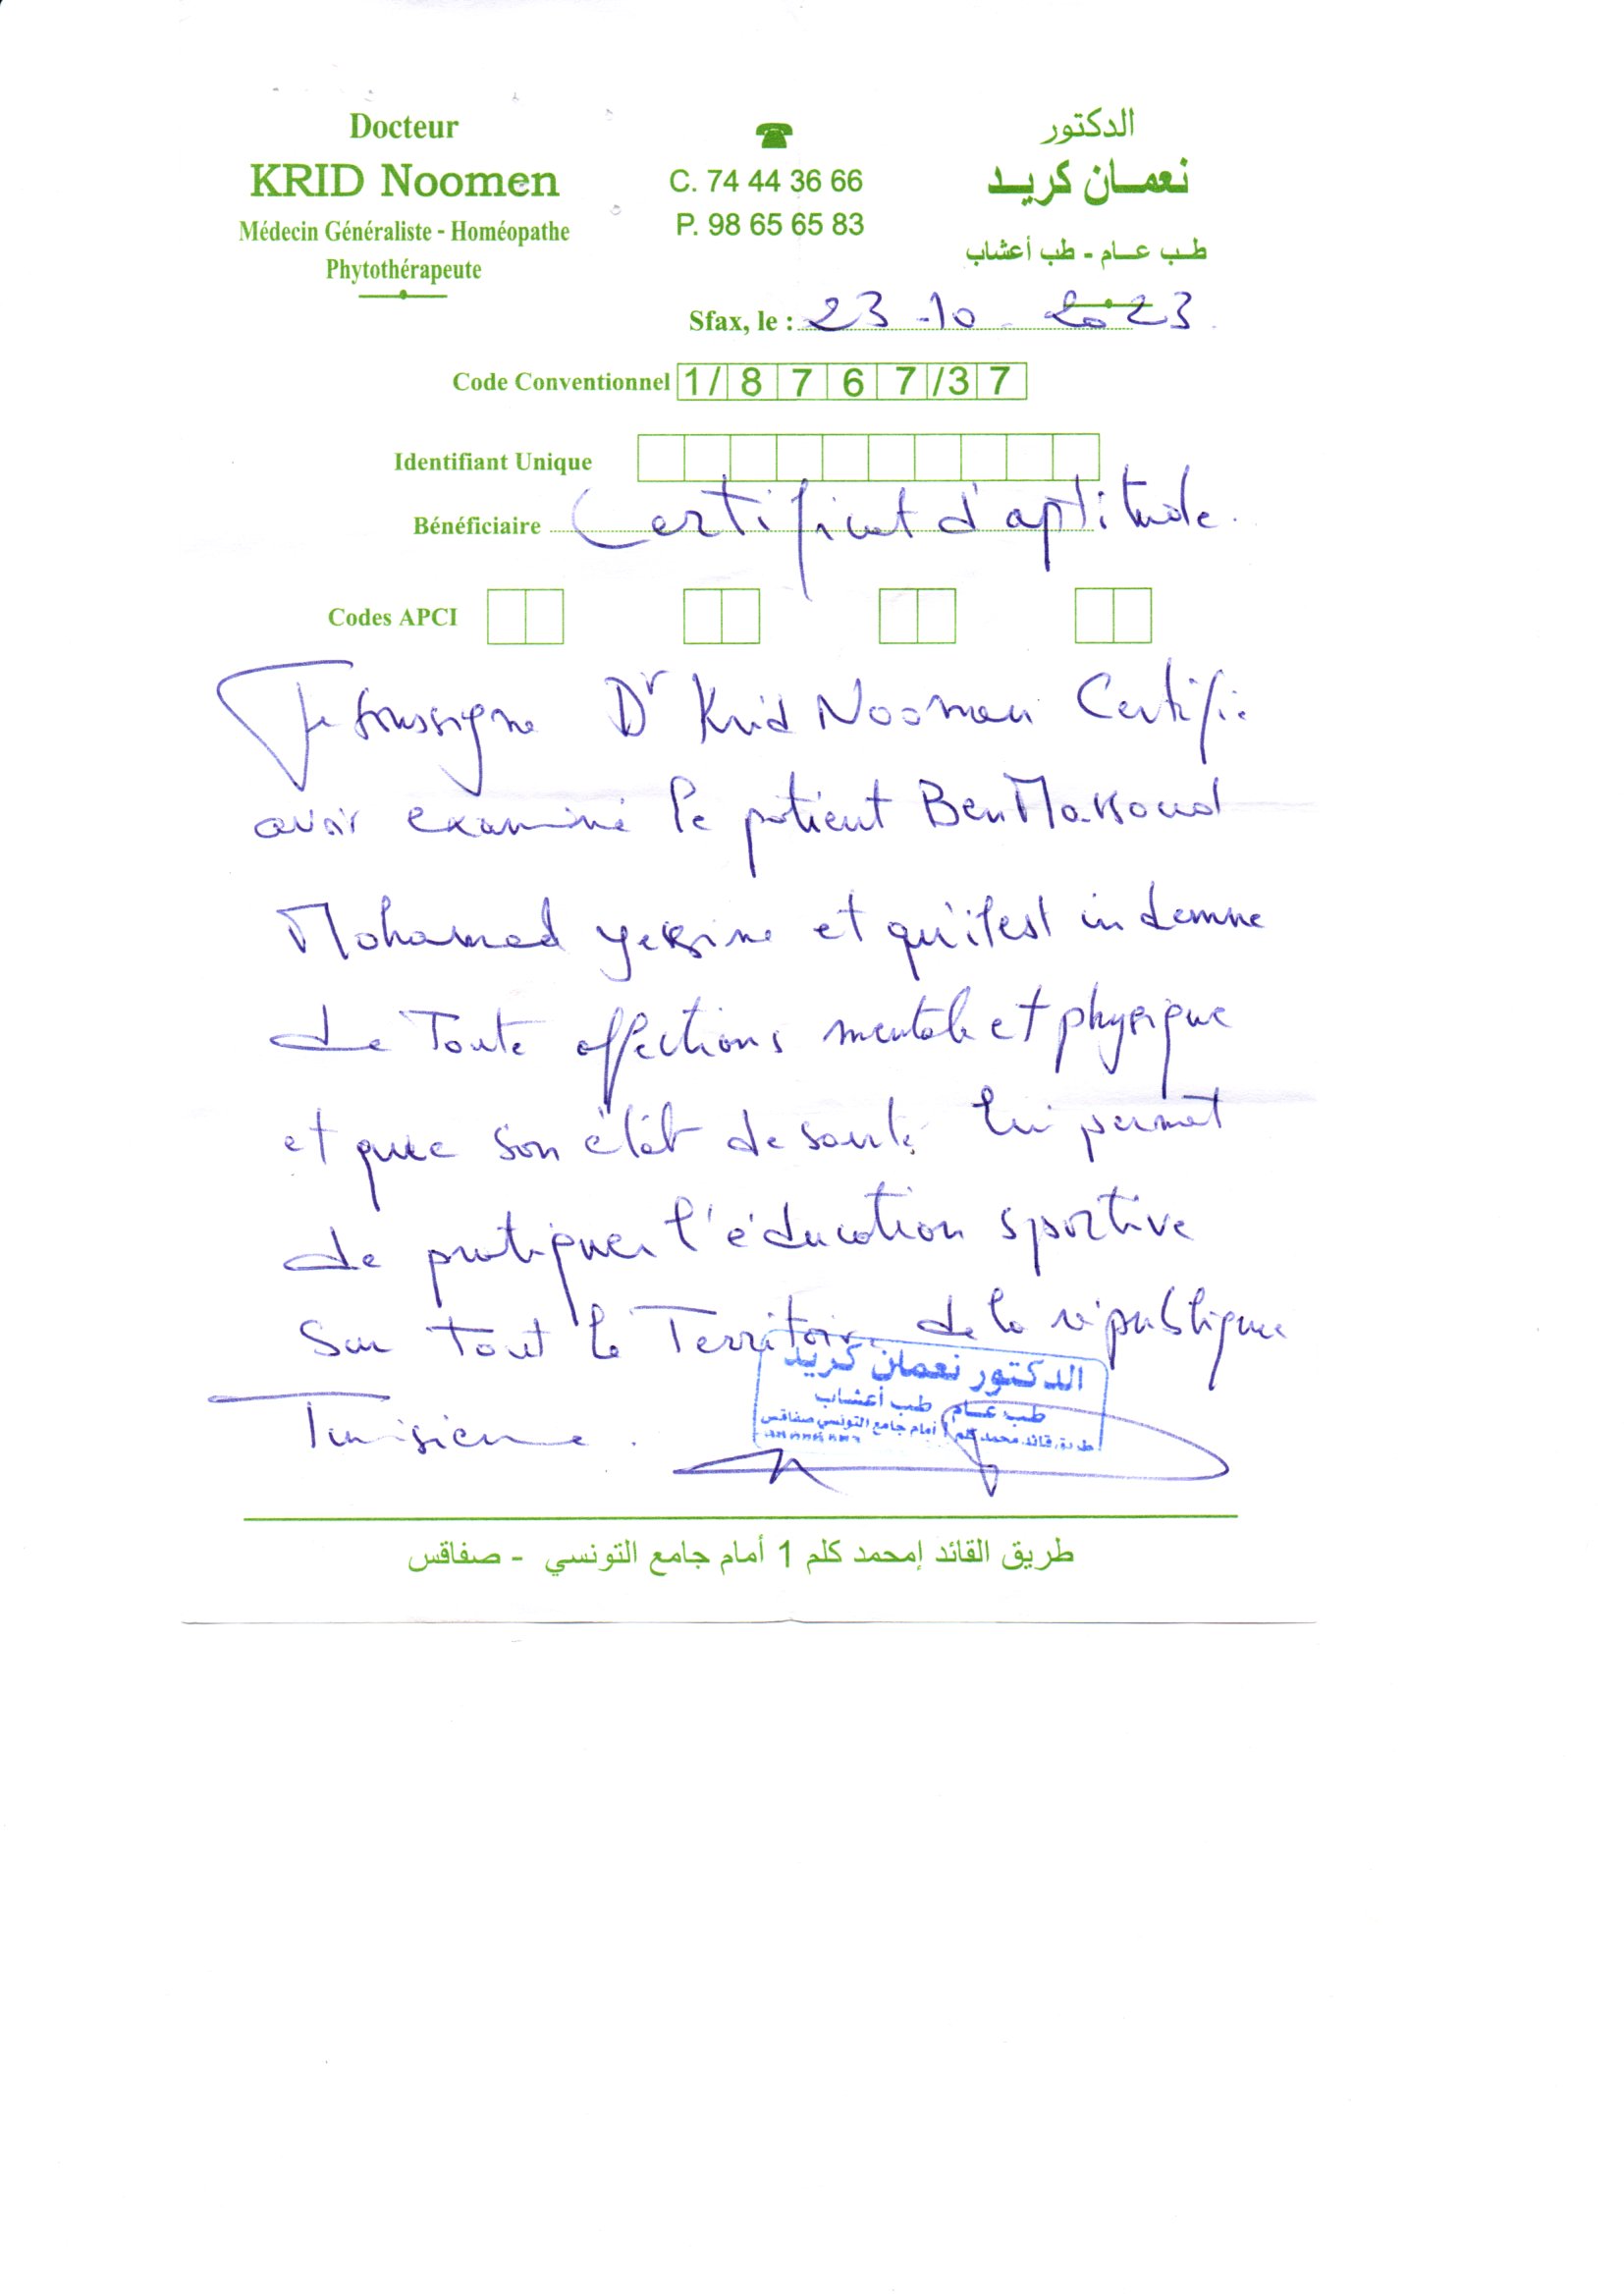 Docteur
KRID Noomen
Médecin Généraliste - Homéopathe
Phytothérapeute
C. 74 44 36 66
P. 98 65 65 83
الدكتور
نعمـــان كريــد
طــب عــام - طب أعشاب
Sfax, le : 23-10-2023
Code Conventionnel 1/8767/37
Identifiant Unique
Bénéficiaire Certificat d'aptitude.
Codes APCI
Je soussigne Dr Krid Noomen Certifie
avoir examiné le patient Ben Massoud
Mohamed yessine et qu'il est indemne
de Toute affections mentale et physique
et que son état de santé lui permet
de pratiquer l'éducation sportive
Sur tout le Territoire de la république
Tunisienne.
الدكتور نعمان كريد
طب عــام طب أعشاب
طريق قائد محمد كلم 1 أمام جامع التونسي صفاقس
طريق القائد إمحمد كلم 1 أمام جامع التونسي - صفاقس